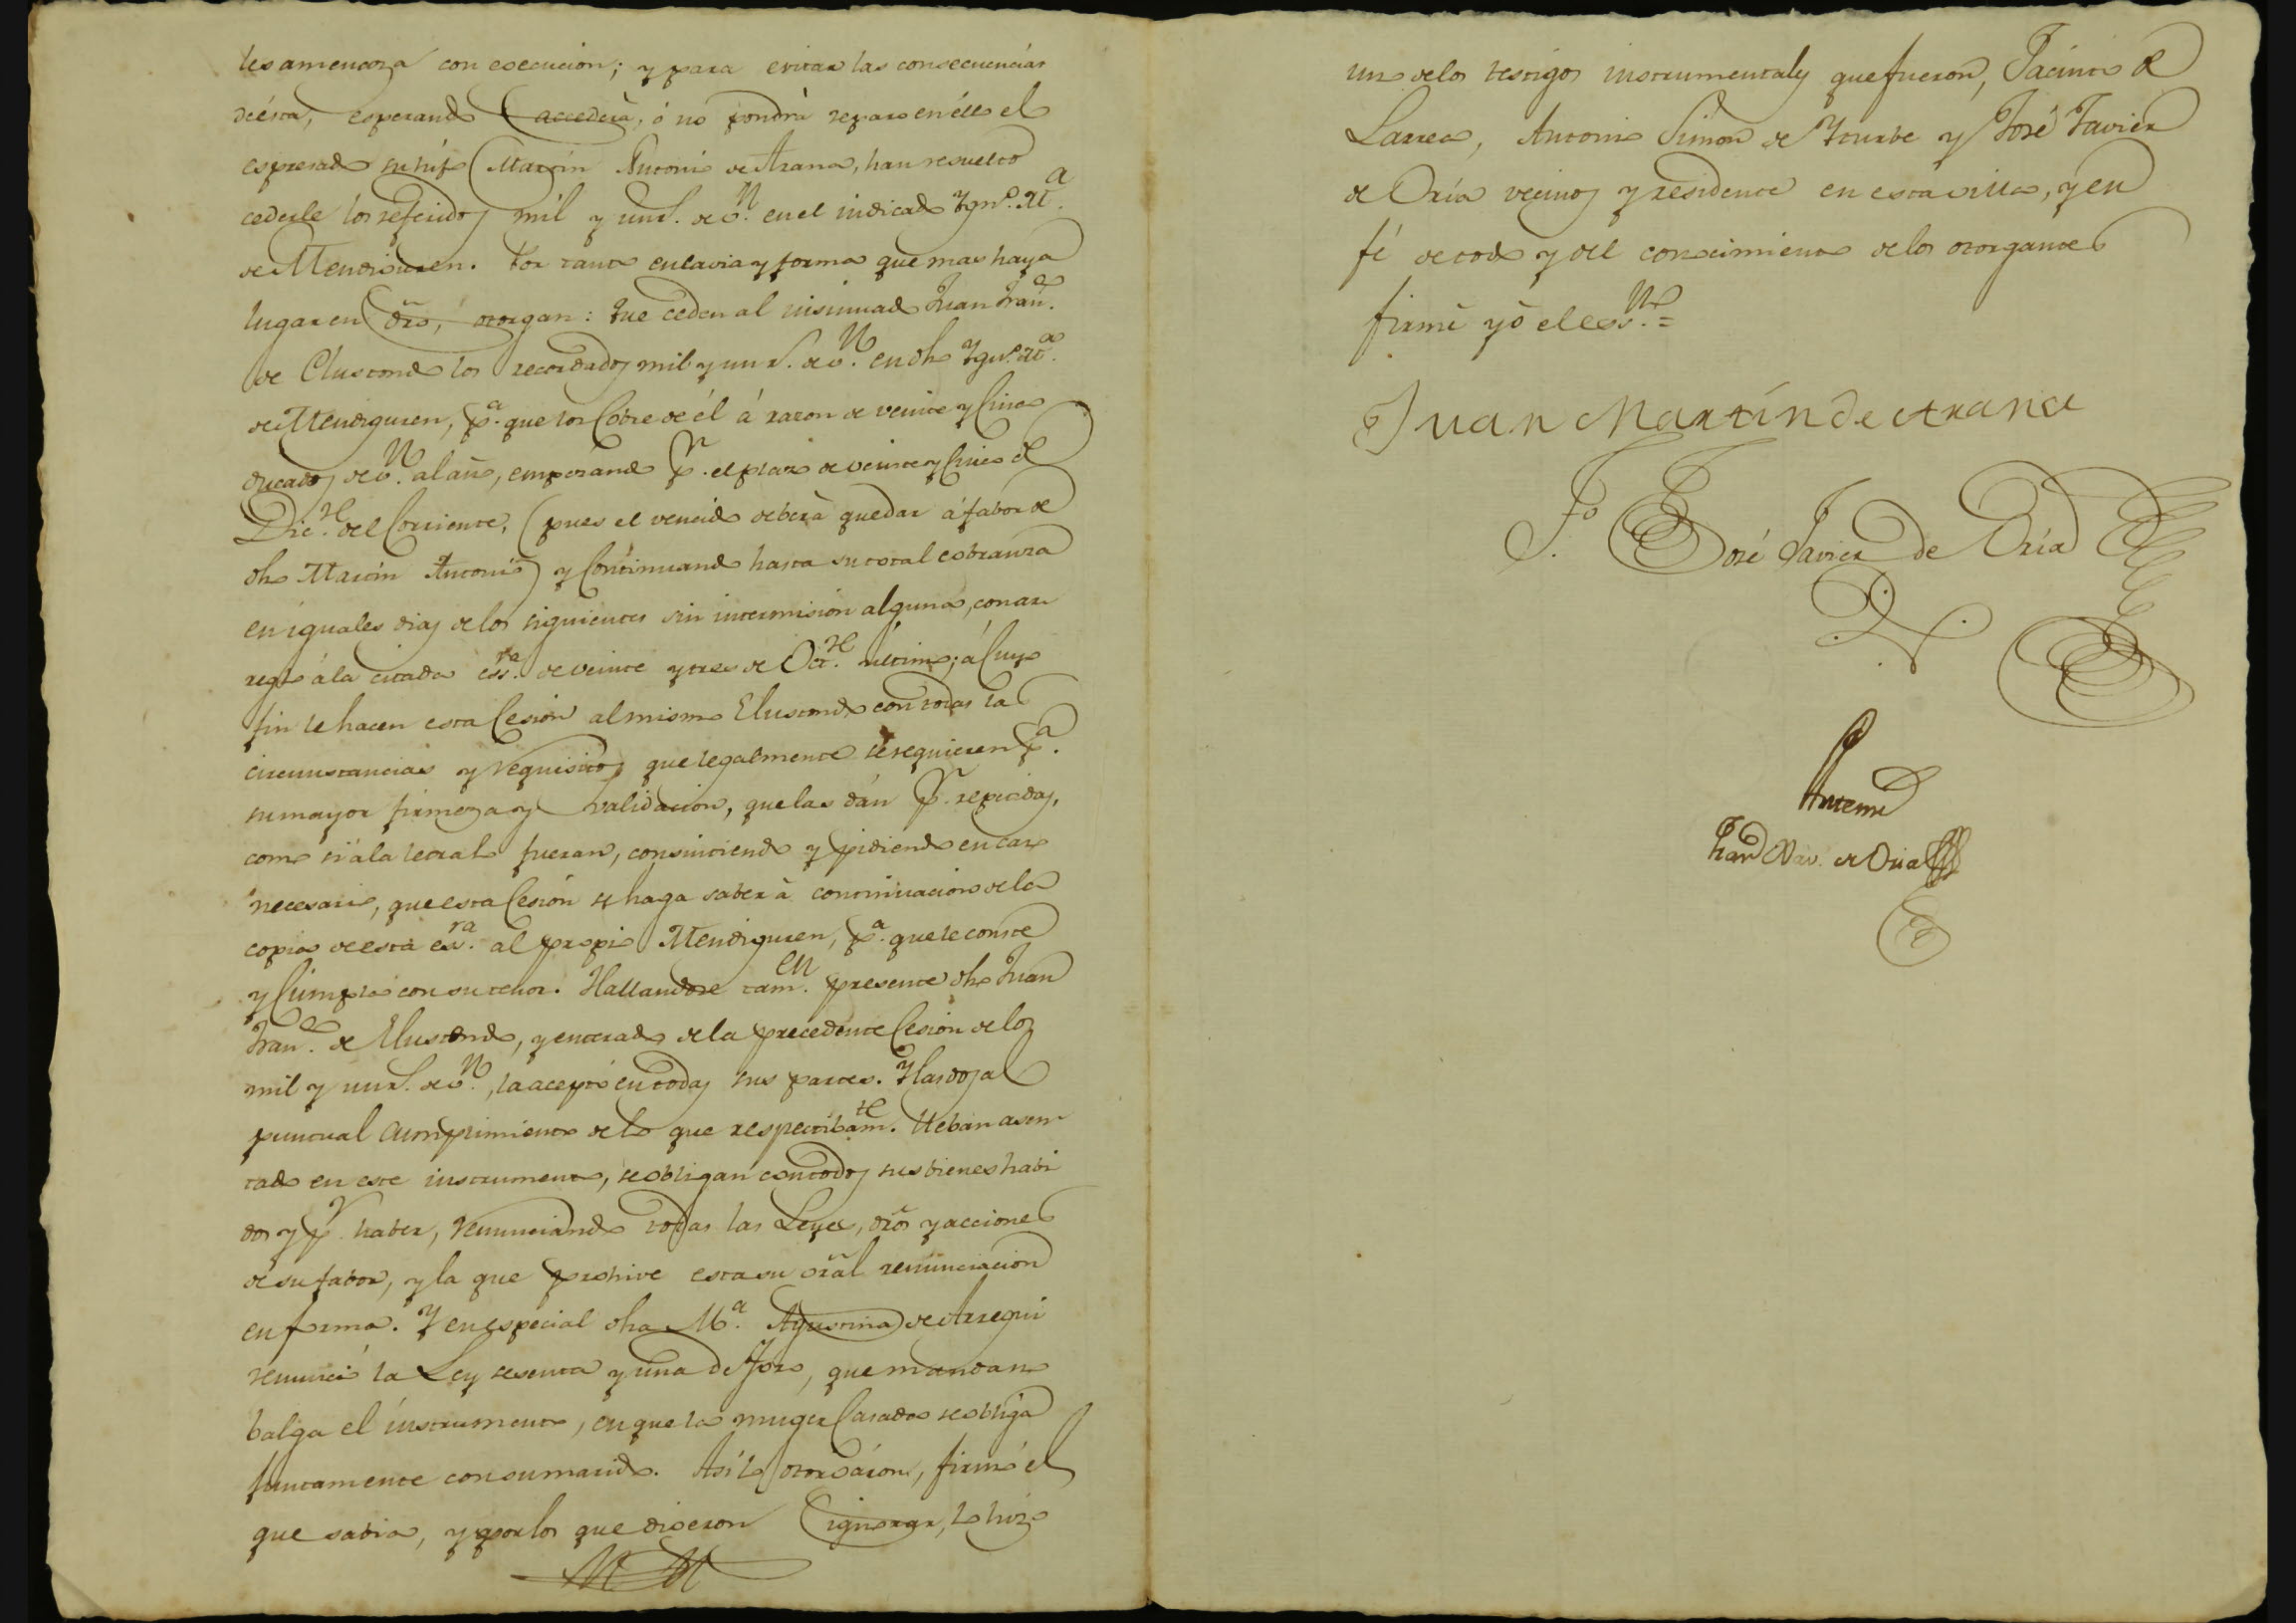 les amenaza con execucion; y para evitar las consecuencias
de ésta, esperando accederà, ó no pondrà reparo en éllo el
espresado su hijo Martin Antonio de Arana, han resuelto
cederle los referidos mil y un r.s de v.n en el indicado Ygn.o M.a
de Mendiguren. Por tanto en la via y forma que mas haya
lugar en dro, otorgan: Que ceden al insinuado Juan Fran.co
de Elustondo los recordados mil y un r.s de v.n en dho Ygn.o M.a
de Mendiguren, p.a que los Cobre de él á razon de veinte y Cinco
ducados de v.n al año, empezando p.r el plazo de veinte y Cinco de
Dic.re del Corriente, (pues el vencido deberà quedar á fabor de
dho Martin Antonio) y Continuando hasta su total cobranza
en iguales dias de los siguientes sin intermision alguna, con ar
reglo á la citada ess.ra de veinte y tres de Oct.re ultimo; á Cuyo
fin le hacen esta Cesion al mismo Elustondo con todas las
circunstancias y requisitos que legalmente se requieren p.a
su mayor firmeza y validacion, que las dán p.r repetidas,
como si à la letra lo fueran, consintiendo y pidiendo en caso
necesario, que esta Cesión se haga saber à continuacion de la
copia de esta es.ra al propio Mendiguren, p.a que le conste
y Cumpla con su tenor. Hallandose tam.en presente dho Juan
Fran.co de Elustondo, y enterado de la precedente Cesion de los
mil y un r.s de v.n, la aceptó en todas sus partes. Y las dos a
puntual cumplimiento de lo que respectibam.te lleban asen
tado en este instrumento, se obligan con todos sus bienes habi
dos y p.r haber, renunciando todas las Leyes, dros y acciones
de su fabor, y la que prohive esta su gral renunciacion
en forma. Y en especial dha M.a Agustina de Arregui
renunció la Ley sesenta y una de Toro, que mandan
balga el instrumento, en que la muger Casada se obliga
juntamente con su marido. Asi lo otorgáron, firmó el
que sabia, y por los que dixeron ignorar, lo hizo
uno de los testigos instrumentales que fueron, Jacinto de
Larrea, Antonio Simon de Yturbe y José Javier
de Oria vecinos y residente en esta villa, y en
fé de todo y del conocimiento de los otorgantes
firmé yo el ess.no =
Juan Martín de Arana
T.o José Javier de Oria
Antemi
Juan Nav. de Oria